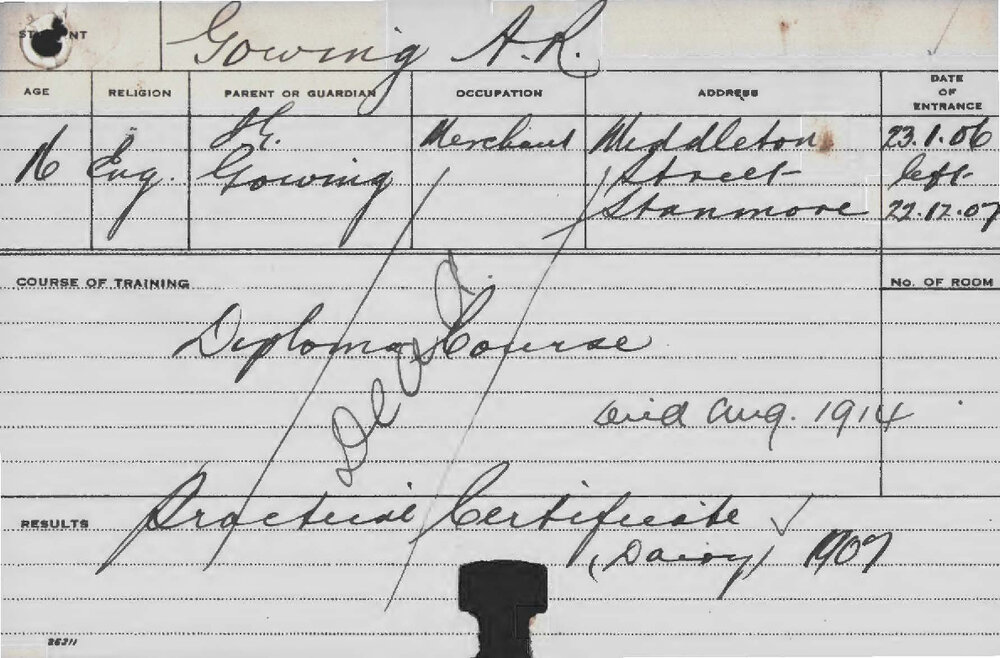 STUDENT Gowing A.R.
AGE RELIGION PARENT OR GUARDIAN OCCUPATION ADDRESS DATE OF ENTRANCE
16 Eng. Gowing Merchant Middleton Street Stanmore 23.1.06 left 22.12.07
COURSE OF TRAINING No. OF ROOM
Diploma Course
Dead
Died Aug. 1914
RESULTS Practical Certificate
(Dairy) 1907
26211